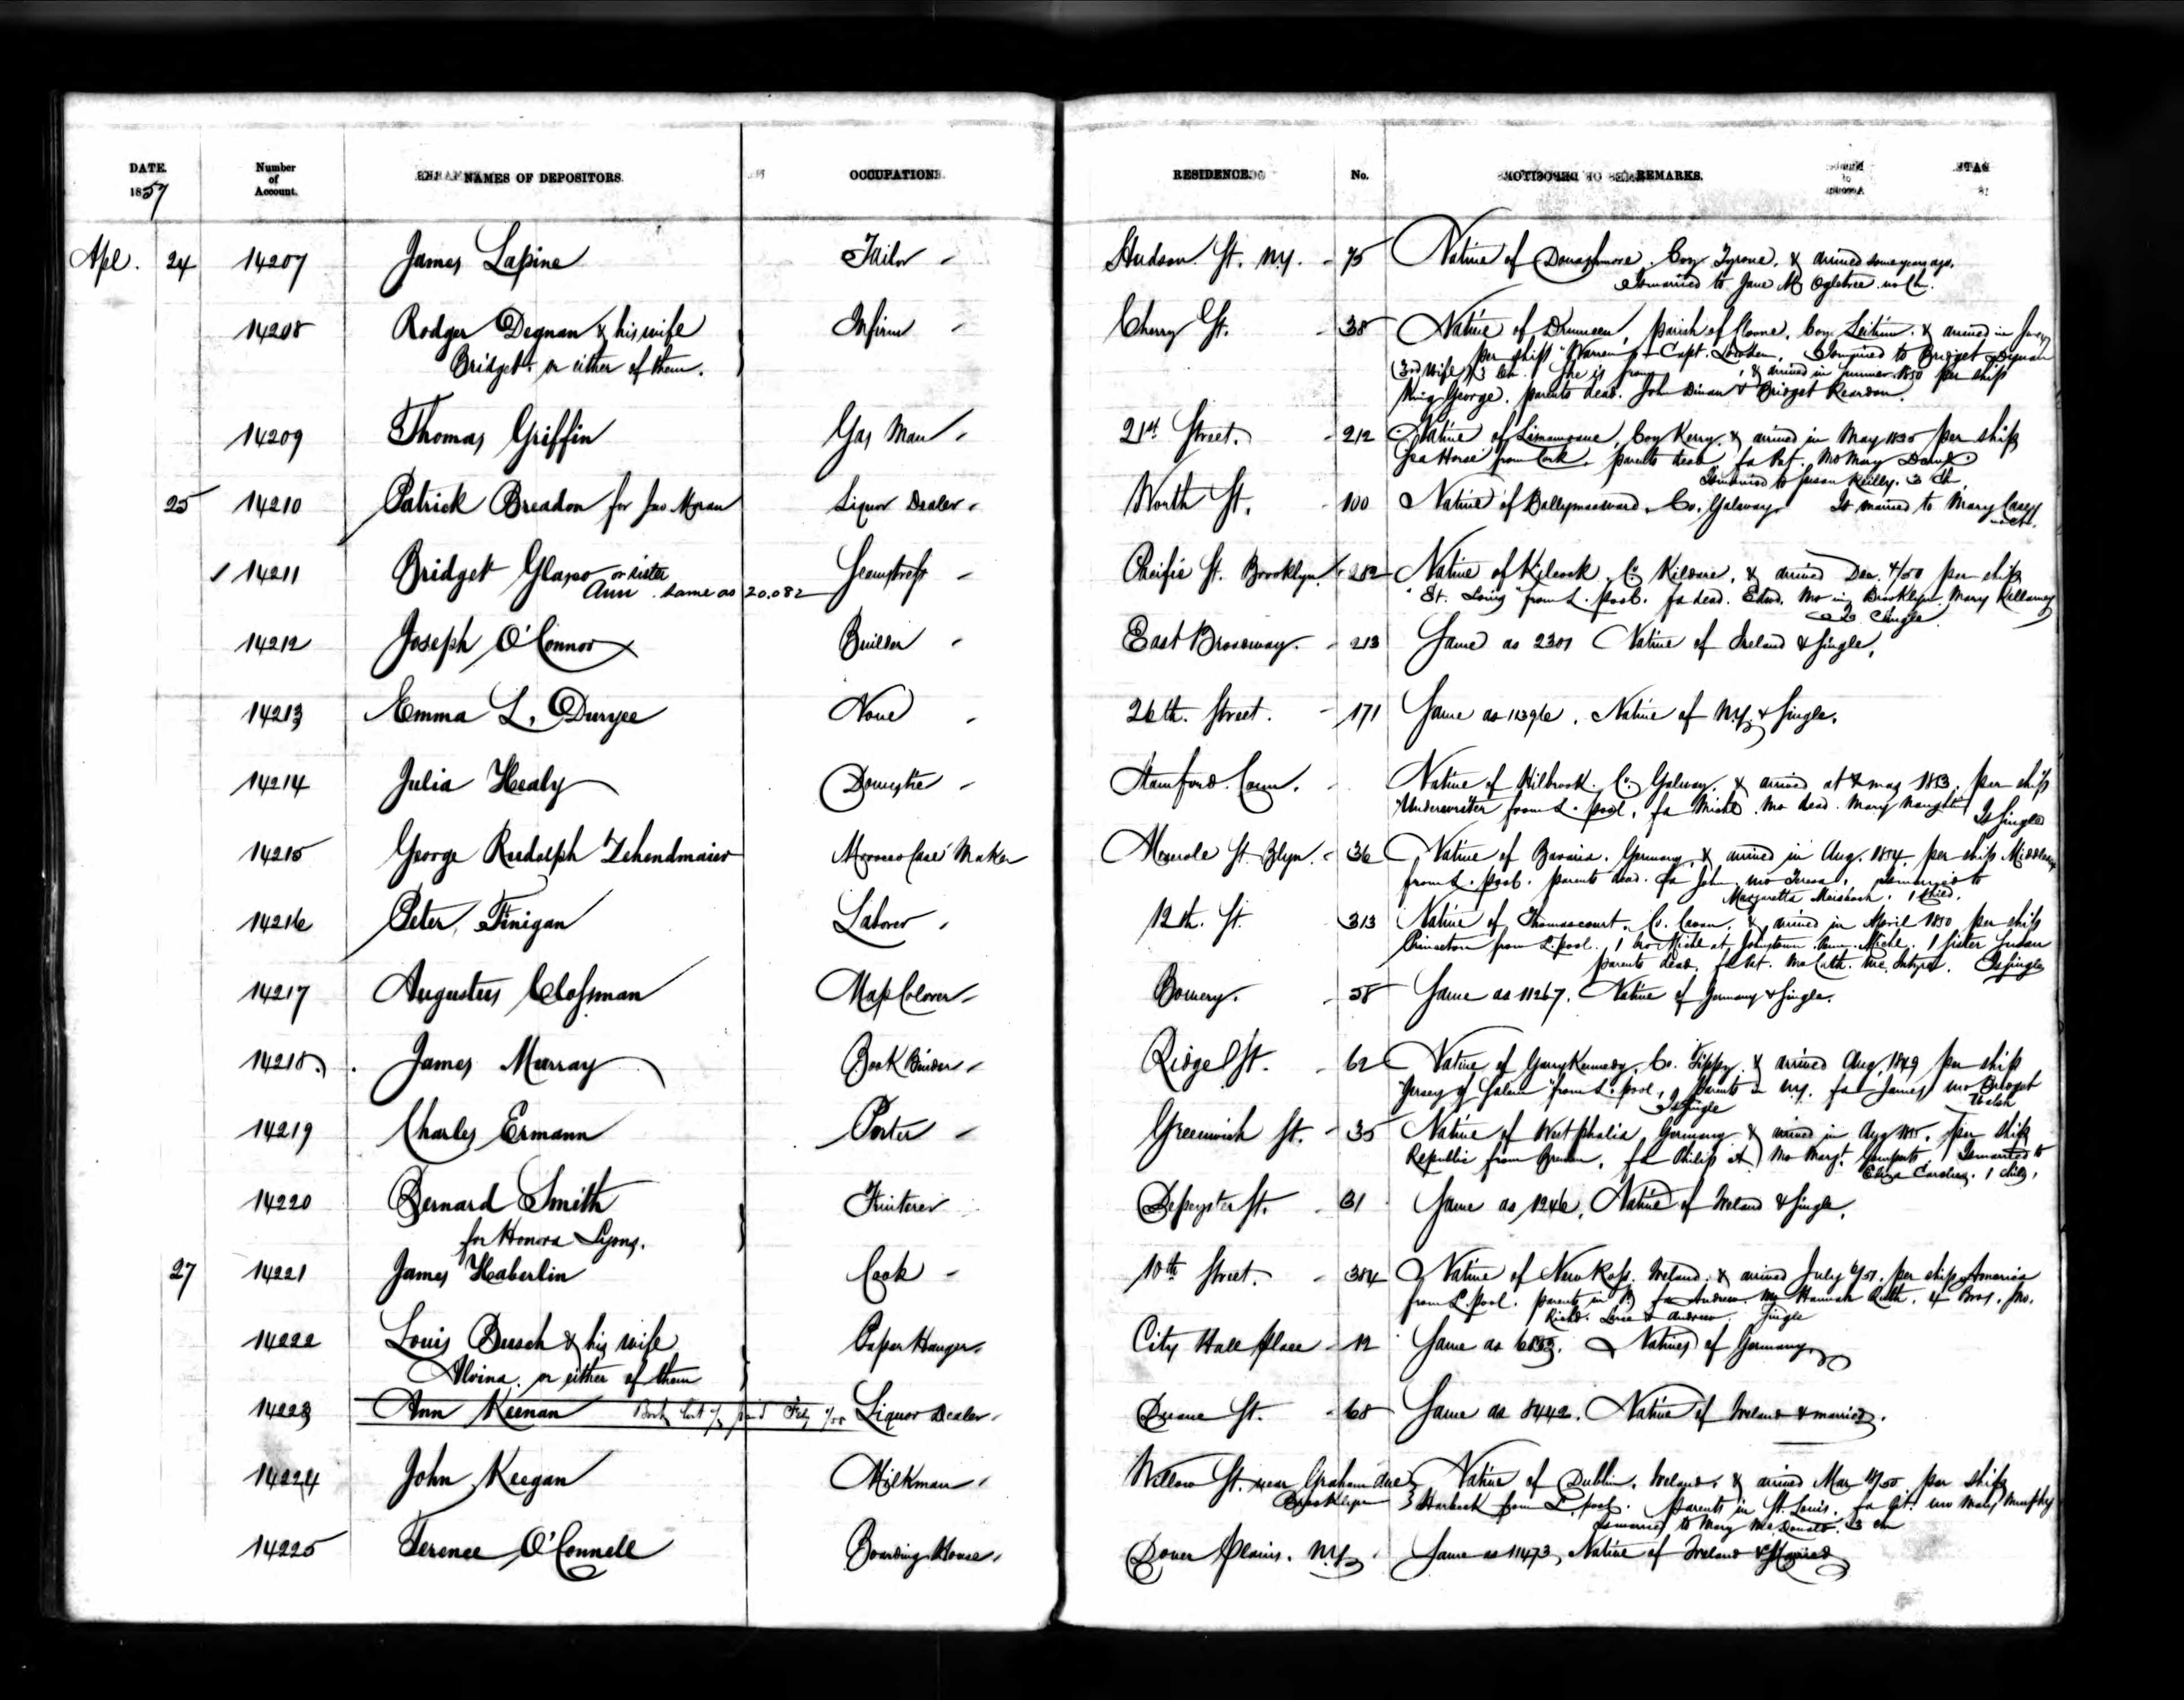 DATE. Number of Account. NAMES OF DEPOSITORS. OCCUPATION. RESIDENCE. No. REMARKS.
1857
Apl. 24 14207 James Lapine Tailor Hudson St. N.Y. 75 Native of Donaghmore. Coy Tyrone, & arrived some years ago.
Is married to Jane M Ogletree no Ch.
14208 Rodger Degnan & his wife Infirm Cherry St. 38 Native of Drumeen, parish of Cloone, Coy Leitrim. & arrived in
Bridget or either of them. per ship "Warren" Capt. Is married to Bridget Dignan
(3rd Wife) 3 Ch. She is from & arrived in summer 1850 per ship
King George. parents dead. John Dinan & Bridget Reardon.
14209 Thomas Griffin Gas Man 21st Street. 212 Native of Coy Kerry, & arrived in May 1835 per ship
Sea Horse from Cork. parents dead fa Pat. Mo Mary
Is married to Susan Reilly. 3 Ch.
25 14210 Patrick Breadon for Jno. Moran Liquor Dealer Worth St. 100 Native of Co. Galway Is married to Mary Casey
no ch.
14211 Bridget or sister Seamstress Pacific St. Brooklyn. 282 Native of Kilcock, Co. Kildare, & arrived Dec. 4/50 per ship
Ann same as 20.082 "St. Louis" from L.pool. fa dead. Edwd. Mo in Brooklyn. Mary
Is Single
14212 Joseph O'Connor Builder East Broadway. 213 Same as 2301 Native of Ireland & Single.
14213 Emma L. Duryee None 26th. Street. 171 Same as 11396. Native of N.Y. & Single.
14214 Julia Healy Domestic Stamford. Conn. Native of Kilbrook. Co. Galway, & arrived May 1853. per ship
Underwriter from L.pool, fa Michl. Mo dead. Mary Naughton
Is Single
14215 George Rudolph Zehendmaier Morocco Case Maker Meserole St. Blyn. 36 Native of Bavaria. Germany, & arrived in Aug. 1854, per ship
from L.pool. parents dead. fa John, mo Teresa, Is married to
Margaretta 1 child.
14216 Peter Finigan Laborer 12th. St. 313 Native of Thomascourt, Co. Cavan, & arrived in April 1850 per ship
Princeton from L.pool., 1 bro Michl at Michl. 1 Sister Susan
parents dead, fa Pat. mo Cath. Mc Is single
14217 Augustus Clossman Map Colorer Bowery. 58 Same as 11267. Native of Germany & Single.
14218 James Murray Book Binder Ridge St. 62 Native of Garrykennedy, Co. Tippy. & arrived Aug. 1849 per ship
Jersey of Salem from L.pool, parents in N.Y. fa James, mo Bridget
Is Single Walsh
14219 Charles Ermann Porter Greenwich St. 35 Native of Westphalia, Germany & arrived in Aug 1855. per ship
Republic from Bremen. fa Philip Mo Margt. Is married to
Eliza 1 child.
14220 Bernard Smith Fruiterer Depeyster St. 31 Same as 1246. Native of Ireland & Single.
for Honora Lyons.
27 14221 James Haberlin Cook 10th Street. 384 Native of New Ross. Ireland. & arrived July 6/51. per ship America
from L.pool. parents in fa Andrew. Mo Hannah 4 Bros. Jno.
Richd. & Andrew. Single
14222 Louis Busch & his wife Paper Hanger City Hall Place 12 Same as Natives of Germany
Alvina. or either of them
14223 Ann Keenan Book lost paid Feby Liquor Dealer Duane St. 68 Same as 8442. Native of Ireland & married.
14224 John Keegan Milkman Willow St. near Graham Ave Native of Dublin. Ireland. & arrived Mar per ship
Brooklyn from L.pool. Parents in St. Louis. fa Pat. mo Mary Murphy
Is married to Mary McDonald. 3 ch
14225 Terence O'Connell Boarding House Dover Plains. N.Y. Same as 11473, Native of Ireland & Married